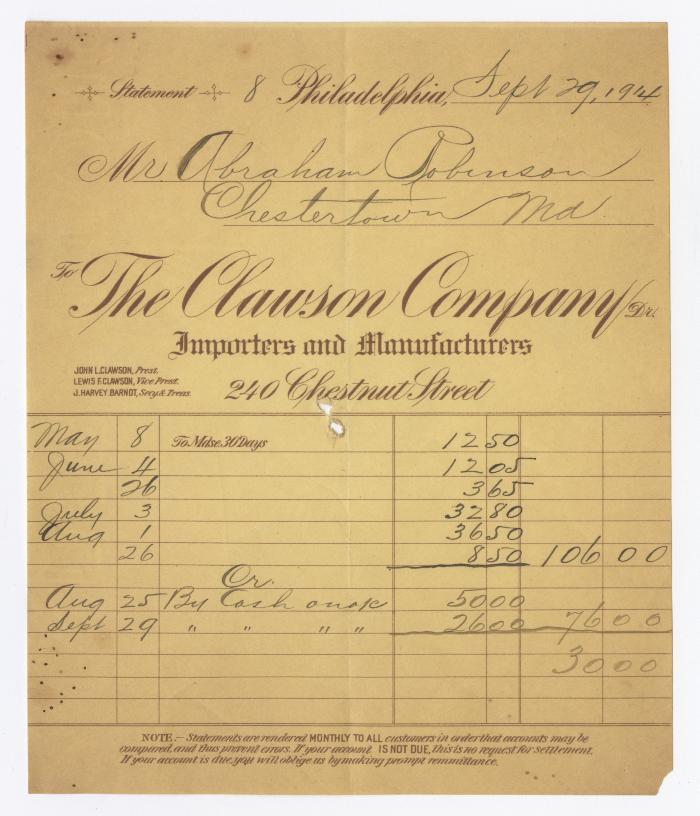 Statement 8 Philadelphia, Sept 29, 1914
Mr Abraham Robinson
Chestertown Md.
To The Clawson Company Dr.
Importers and Manufacturers
JOHN L. CLAWSON, Prest.
LEWIS F. CLAWSON, Vice Prest.
J. HARVEY BARNDT, Secy. & Treas.
240 Chestnut Street
May 8 To Mdse. 30 Days 12 50
June 4 12 05
26 3 65
July 3 32 80
Aug 1 36 50
26 8 50 106 00
Cr.
Aug 25 By Cash on a/c 50 00
Sept 29 " " " " 26 00 76 00
30 00
NOTE.- Statements are rendered MONTHLY TO ALL customers in order that accounts may be
compared, and thus prevent errors. If your account IS NOT DUE, this is no request for settlement.
If your account is due, you will oblige us by making prompt remmittance.